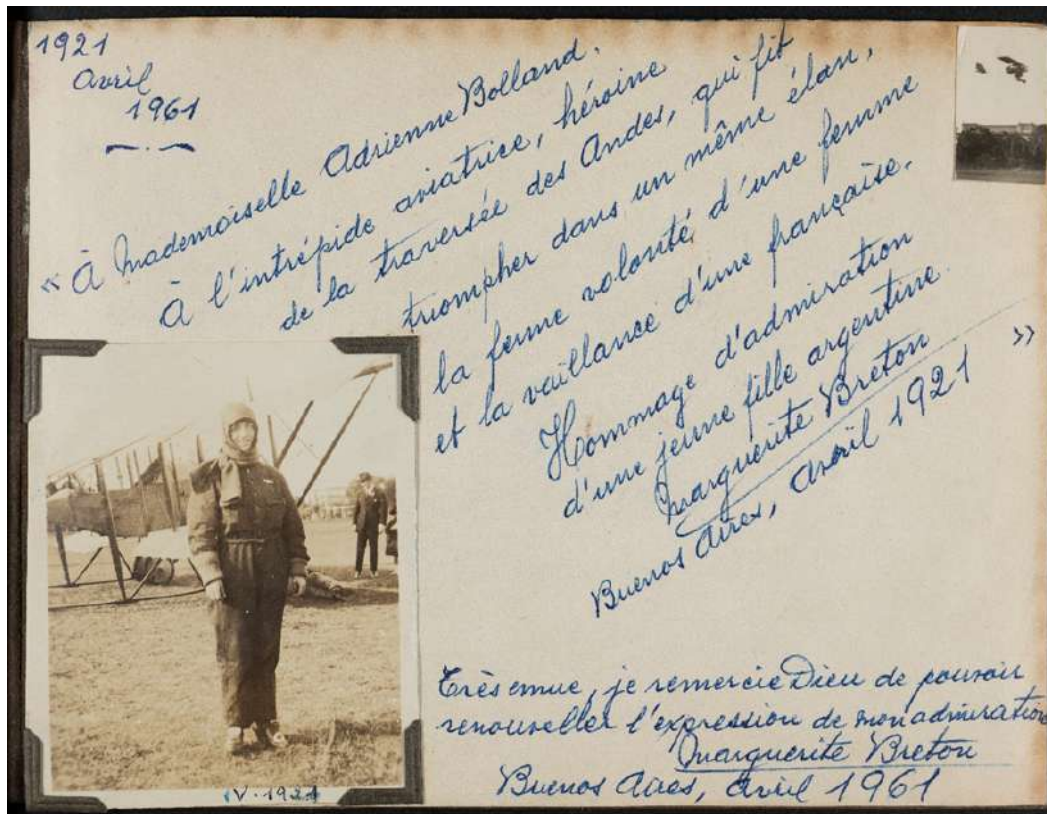 1921
Avril
1961
« À Mademoiselle Adrienne Bolland.
À l'intrépide aviatrice, héroïne
de la traversée des Andes, qui fit
triompher dans un même élan,
la ferme volonté d'une femme
et la vaillance d'une française.
Hommage d'admiration
d'une jeune fille argentine.
Marguerite Breton »
Buenos Aires, Avril 1921
IV-1921
Très emue, je remercie Dieu de pouvoir
renouveller l'expression de mon admiration
Marguerite Breton
Buenos Aires, Avril 1961